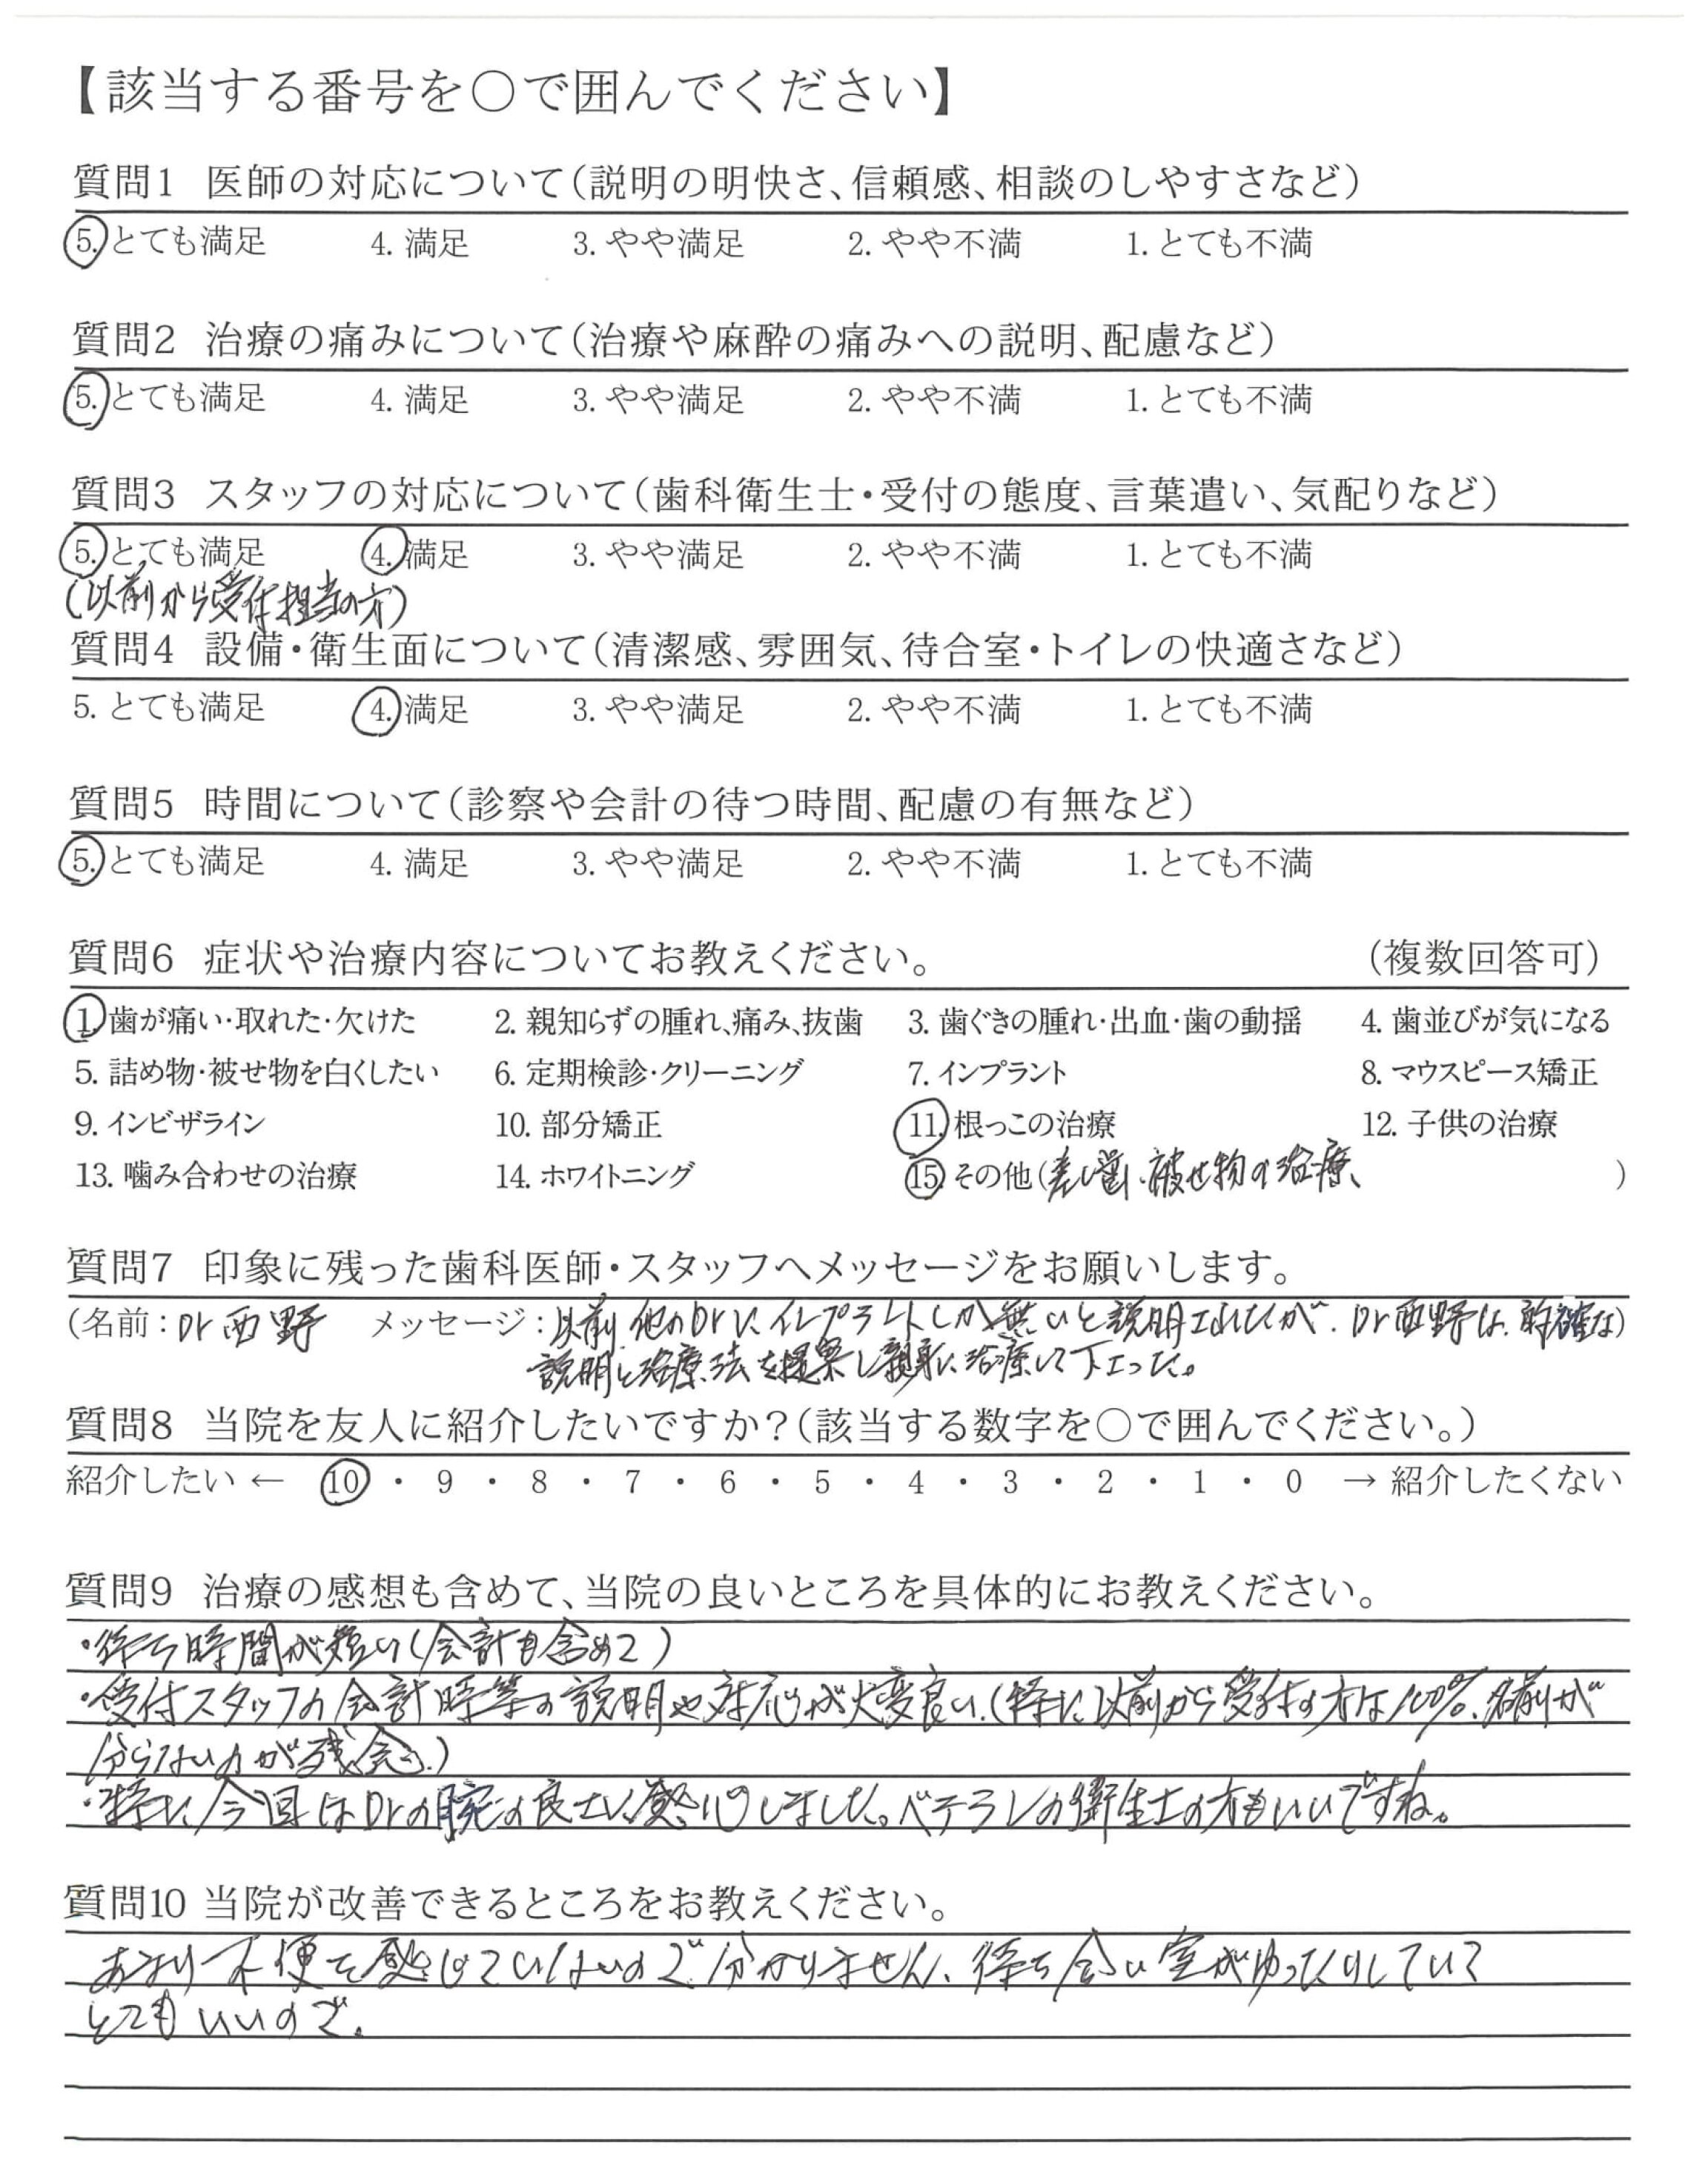 【該当する番号を〇で囲んでください】
質問1 医師の対応について（説明の明快さ、信頼感、相談のしやすさなど）
5. とても満足 4. 満足 3. やや満足 2. やや不満 1. とても不満
質問2 治療の痛みについて（治療や麻酔の痛みへの説明、配慮など）
5. とても満足 4. 満足 3. やや満足 2. やや不満 1. とても不満
質問3 スタッフの対応について（歯科衛生士・受付の態度、言葉遣い、気配りなど）
5. とても満足 4. 満足 3. やや満足 2. やや不満 1. とても不満
（以前から受付担当の方）
質問4 設備・衛生面について（清潔感、雰囲気、待合室・トイレの快適さなど）
5. とても満足 4. 満足 3. やや満足 2. やや不満 1. とても不満
質問5 時間について（診察や会計の待つ時間、配慮の有無など）
5. とても満足 4. 満足 3. やや満足 2. やや不満 1. とても不満
質問6 症状や治療内容についてお教えください。 （複数回答可）
1. 歯が痛い・取れた・欠けた 2. 親知らずの腫れ、痛み、抜歯 3. 歯ぐきの腫れ・出血・歯の動揺 4. 歯並びが気になる
5. 詰め物・被せ物を白くしたい 6. 定期検診・クリーニング 7. インプラント 8. マウスピース矯正
9. インビザライン 10. 部分矯正 11. 根っこの治療 12. 子供の治療
13. 噛み合わせの治療 14. ホワイトニング 15. その他（差し歯、被せ物の治療、 ）
質問7 印象に残った歯科医師・スタッフへメッセージをお願いします。
（名前：Dr西野 メッセージ：以前、他のDrにインプラントしか無いと説明されたが、Dr西野は、的確な）
説明と治療法を提案し親身に治療して下さった。
質問8 当院を友人に紹介したいですか？（該当する数字を〇で囲んでください。）
紹介したい ← 10 ・ 9 ・ 8 ・ 7 ・ 6 ・ 5 ・ 4 ・ 3 ・ 2 ・ 1 ・ 0 → 紹介したくない
質問9 治療の感想も含めて、当院の良いところを具体的にお教えください。
・待ち時間が短い（会計も含めて）
・受付スタッフの会計時等の説明や対応が大変良い。（特に以前から受付の方は100%、名前が
分らないのが残念。）
・特に、今回はDrの腕の良さに感心しました。ベテランの衛生士の方もいいですね。
質問10 当院が改善できるところをお教えください。
あまり不便を感じていないので分かりません、待ち合い室がゆったりしていて
とてもいいので。